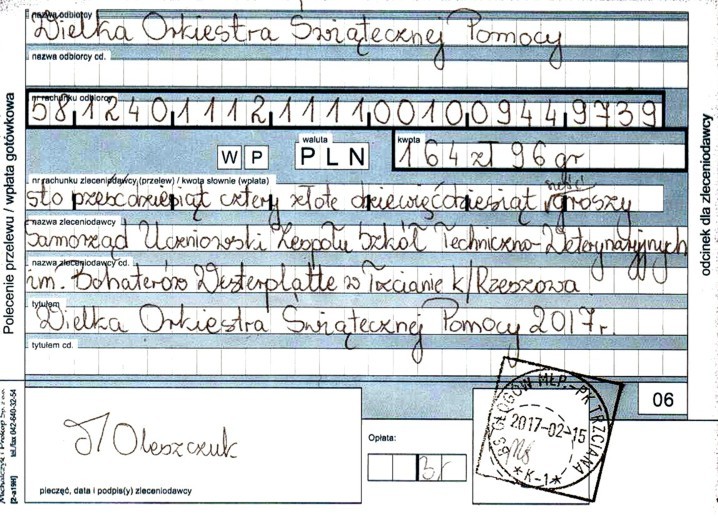 nazwa odbiorcy
Wielka Orkiestra Świątecznej Pomocy
nazwa odbiorcy cd.
nr rachunku odbiorcy
58 1240 1112 1111 0010 0944 9739
WP
waluta
PLN
kwota
164 zł 96 gr
nr rachunku zleceniodawcy (przelew) / kwota słownie (wpłata)
sześć
sto sześćdziesiąt cztery złote dziewięćdziesiąt groszy
nazwa zleceniodawcy
Samorząd Uczniowski Zespołu Szkół Techniczno-Weterynaryjnych
nazwa zleceniodawcy cd.
im. Bohaterów Westerplatte w Trzcianie k/Rzeszowa
tytułem
Wielka Orkiestra Świątecznej Pomocy 2017r.
tytułem cd.
06
Oleszczuk
pieczęć, data i podpis(y) zleceniodawcy
Opłata:
GŁOGÓW MŁP.-PK TRZCIANA
2017-02-15
*K-1*
Polecenie przelewu / wpłata gotówkowa
odcinek dla zleceniodawcy
tel./fax 042-640-32-54